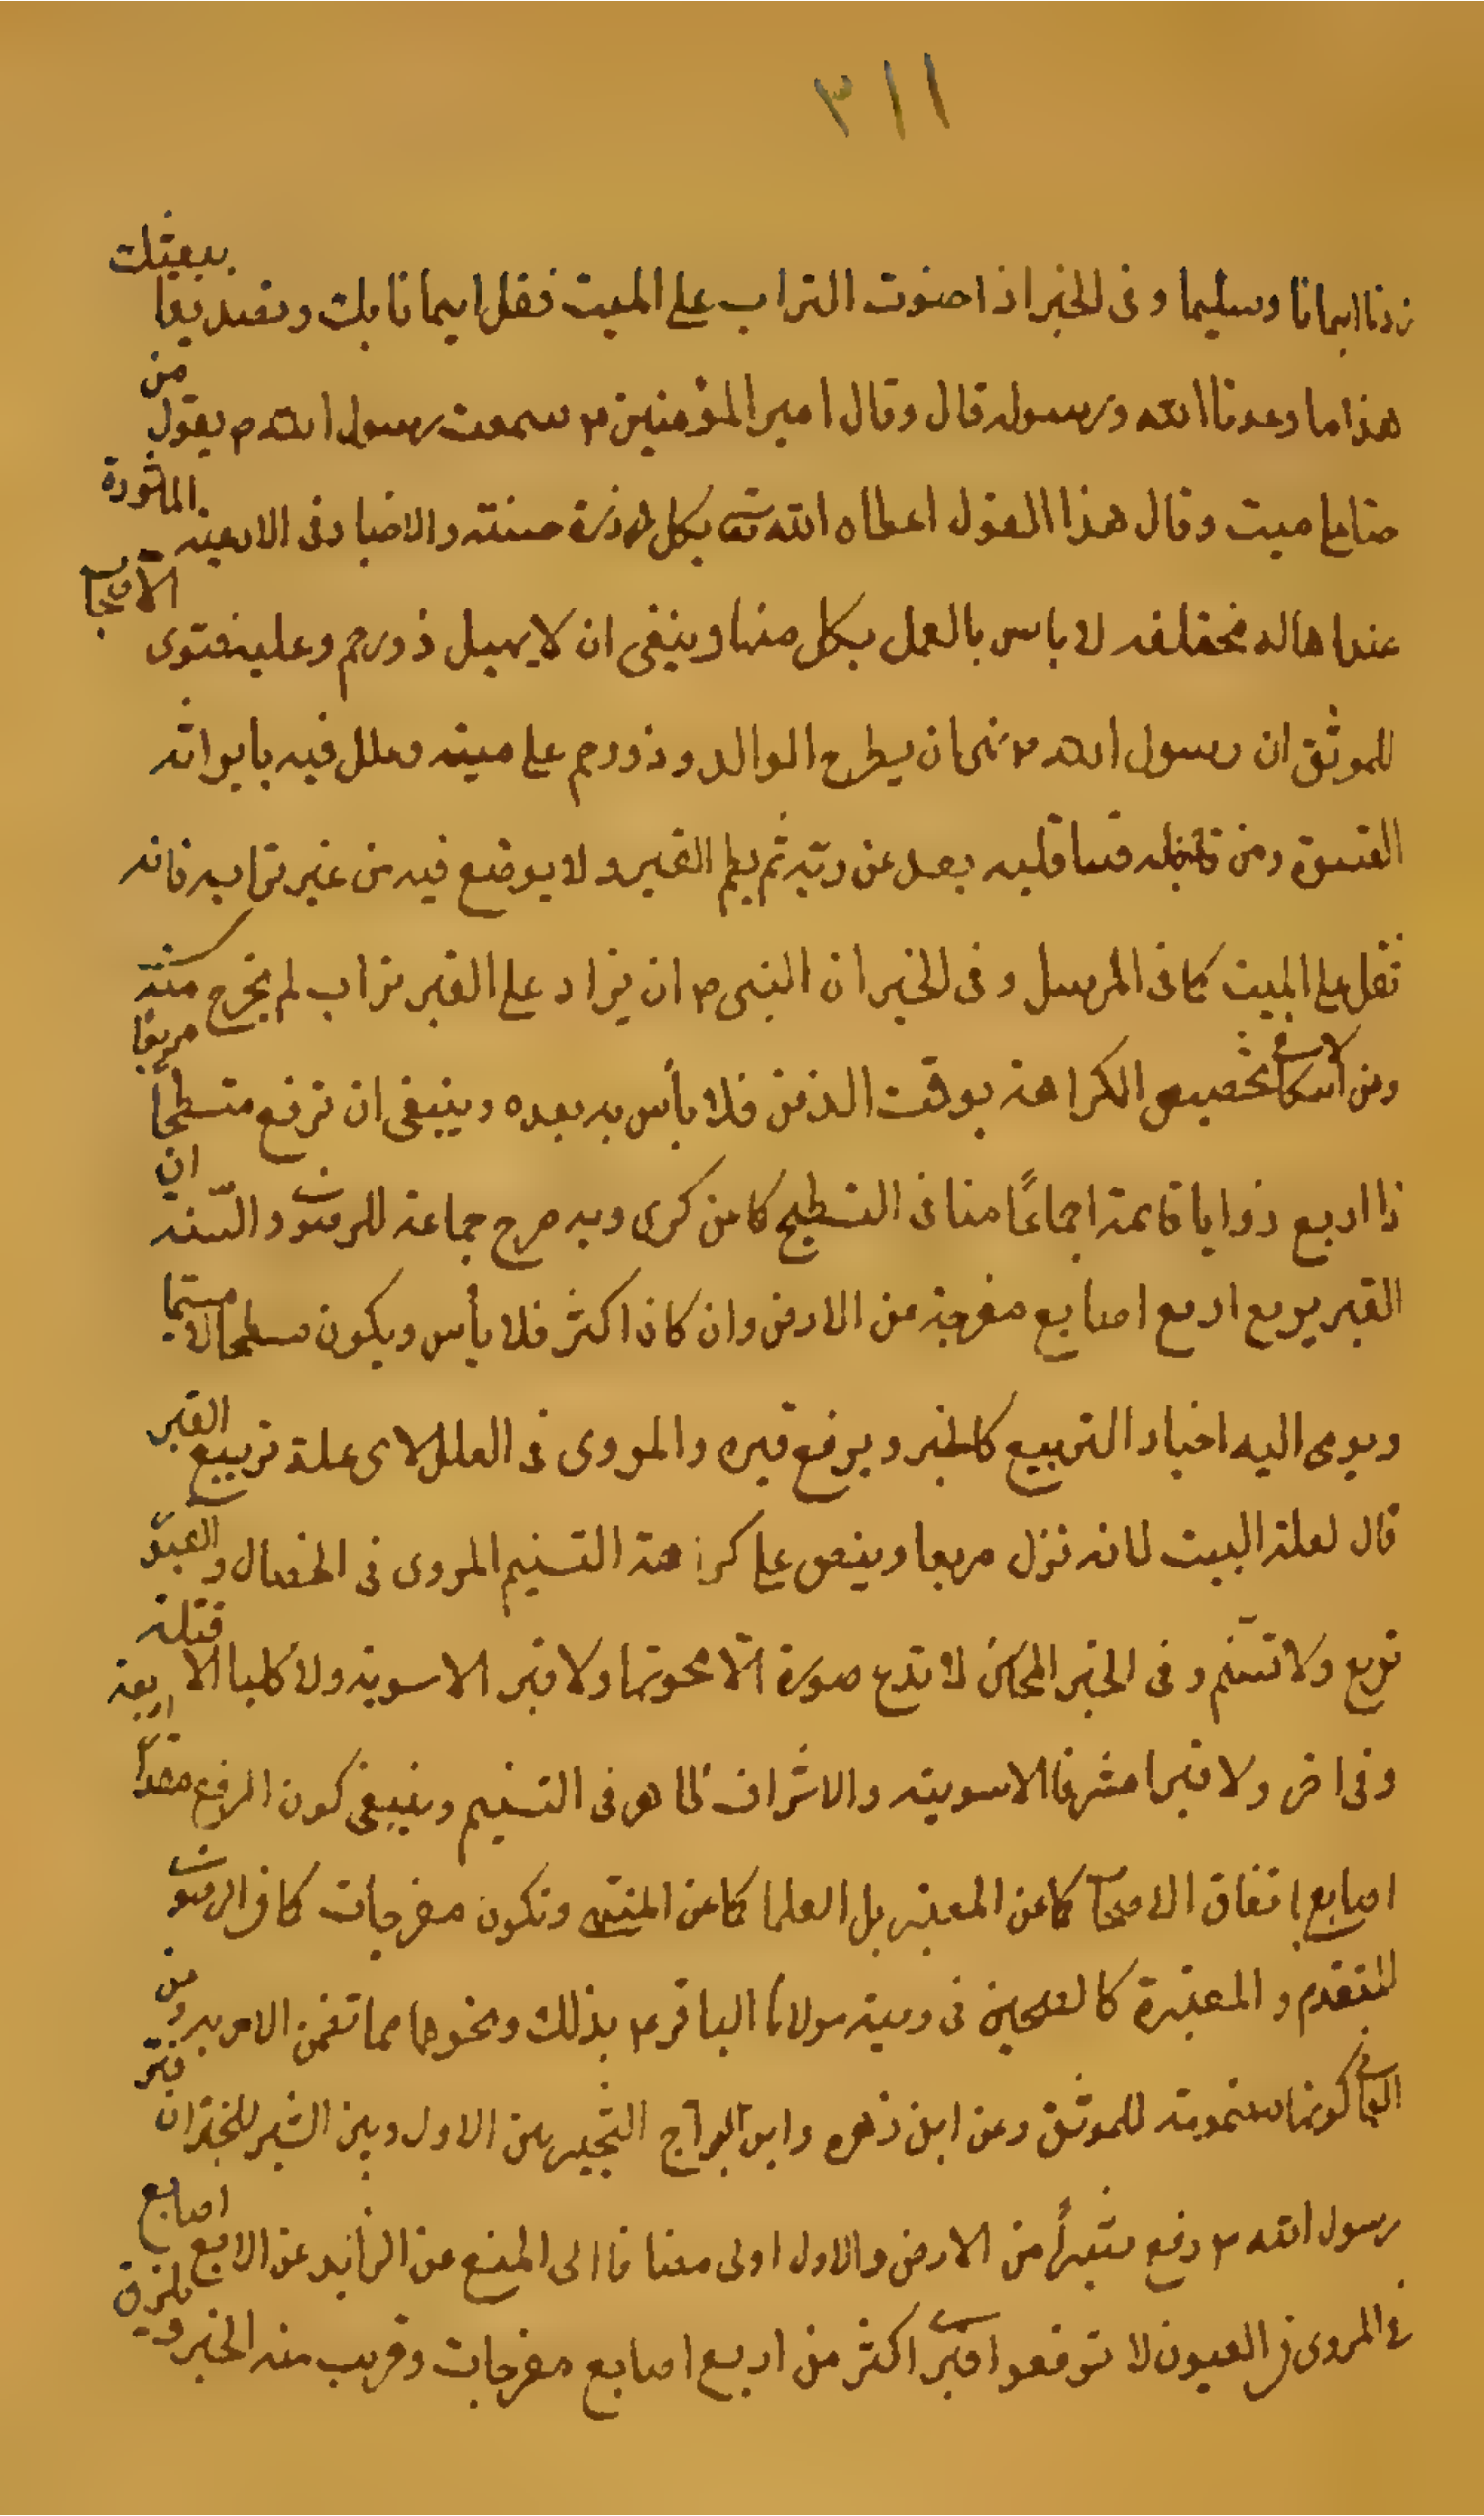 ٣١١
زدنا ايمانا وتسليما وفى الخبر اذا حثوت التراب على الميت فقل ايمانا بك وتصديقا ببعثك
هذا ما وعدنا الله ورسوله قال وقال امير المؤمنين ع سمعت رسول الله ص يقول من
حثا على ميت وقال هذا القول اعطاه الله تعه بكل ذرة حسنة والاخبار فى الادعية المأثورة
عندها له مختلفه لا باس بالعمل بكل منها وينبغى ان لا يهيل ذو رحم وعليه فتوى الاصحاب
للموثق ان رسول الله ص نهى ان يطرح الوالد و ذو رحم على ميته وعلل فيه بايراثه
القسوة ومن قسا قلبه بعد عن ربّه ثم يطم القبر ولا يوضع فيه من غير ترابه فانه
ثقل على الميت كما فى المرسل وفى الخبر ان النبى ص ان يزاد على القبر تراب لم يخرج منه
وعن الاسكافى تخصيص الكراهة بوقت الدفن فلا بأس به بعده وينبغى ان ترفع متسطحاً مربعا
ذا اربع زوايا قائمة اجماعًا منا فى التسطيح كما عن كرى وبه صرح جماعة للرضوى والسّنة ان
القبر يرفع اربع اصابع مفرجة من الارض وان كان اكثر فلا بأس ويكون مسطحا لا مسنما
ويومى اليه اخبار التربيع كالخبر ويرفع قبره والمروى فى العلل لاى علة تربيع القبر
قال لعلة البيت لانه نزل مربعا وينص على كراهة التسنيم المروى فى الخصال و القبر
تربع ولا تسنم وفى الخبر المحاسن لا تدع صورة الّا محوتها ولا قبر الا سويته ولا كلبا الا قتلته
وفى اخر ولا قبرا مشرفا الا سويته والاشراف ظاهر فى التسنيم وينبغى كون الرفع مقدار اربعة
اصابع باتفاق الاصحاب كما عن المعتبر بل العلما كما عن المنتهى وتكون مفرجات كما فى الرضوى
المتقدم و المعتبرة كالصحيحين فى وصية مولانا الباقر ع بذلك ونحوها مما تضمن الامر به وعن
العمانى كونها مضمومة للموثق وعن ابن زهره وابن البراج التخيير بين الاول وبين الشبر للخبر ان قبر
رسول الله ص رفع شبراً من الارض والاول اولى مضافا الى المنع عن الزايد عن الاربع اصابع
فى المروى فى العيون لا ترفعوا قبرى اكثر من اربع اصابع مفرجات وقريب منه الخبر ويلزق